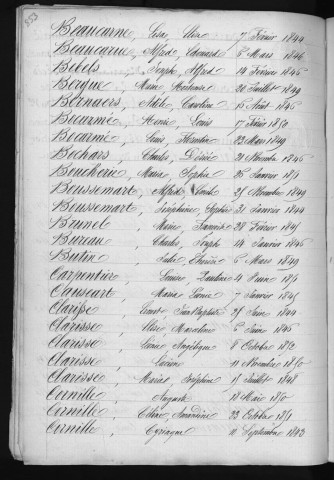 353
Beaucarne, Lisa Elise 7 Février 1844
Beaucarne, Alfred Edouard 5 Mars 1846
Bebels, Joseph Alfred 14 Février 1845
Berque, Marie Hortense 20 Juillet 1849
Bernaers, Adèle Caroline 15 Août 1845
Bieuzmé, Henri Louis 17 Février 1850
Becarmé, Louis Florentin 22 Mars 1849
Bochars, Charles Désiré 21 Novembre 1846
Boucherie, Maria Sophie 25 Janvier 1851
Boussemart, Alfred 25 Novembre 1849
Boussemart, Joséphine Sophie 31 Janvier 1844
Brunel, Marie Jeannie 28 Février 1845
Bureau, Charles Joseph 14 Janvier 1846
Butin, Julie 6 Mars 1849
Carpentier, Louise Pauline 4 Juin 1851
Clauscart, Maria 7 Janvier 1845
Clarisse, Ernest Jean Baptiste 25 Juin 1844
Clarisse, Elise Marceline 6 Juin 1846
Clarisse, Angélique 8 Octobre 1852
Clarisse, 11 Novembre 1850
Clarisse, Maria Joséphine 15 Juillet 1848
Cornille, Auguste 18 Mars 1850
Cornille, Amandine 22 Octobre 1851
Cornille, Cyriaque 11 Septembre 1843